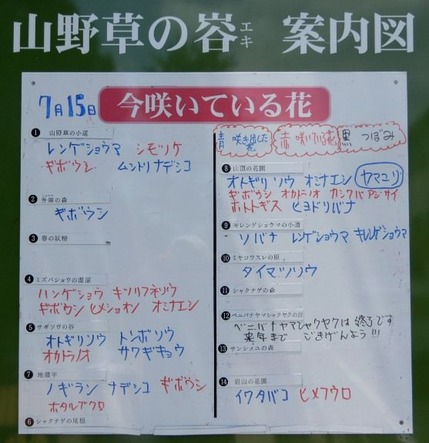 山野草の谷 エキ 案内図
7月15日 今咲いている花
❶ 山野草の小道
レンゲショウマ シモツケ
ギボウシ ムシトリナデシコ
❷
ギボウシ
❸ 春の妖精
❹ ミズバショウの湿原
ハンゲショウ キツリフネソウ
ギボウシ ヒメシオン オミナエシ
❺ サギソウの谷
オトギリソウ トンボソウ
オカトラノオ サワギキョウ
❼ 地蔵平
ノギラン ナデシコ ギボウシ
ホタルブクロ
❻ シャクナゲの尾根
青 咲き出した花 赤 咲いている花 黒 つぼみ
❽ 山頂の花園
オトギリソウ オミナエシ ヤマユリ
ギボウシ オカトラノオ カシワバアジサイ
ホトトギス ヒヨドリバナ
❾ キレンゲショウマの小道
ソバナ レンゲショウマ キレンゲショウマ
❿ ミヤコワスレの原
タイマツソウ
⓫ シャクナゲの森
⓬ ベニバナヤマシャクヤクの丘
ベニバナヤマシャクヤクは終了です
来年まで ごきげんよう!!!
⓭ サンシュユの森
⓮ 岩山の花園
イワタバコ ヒメフウロ